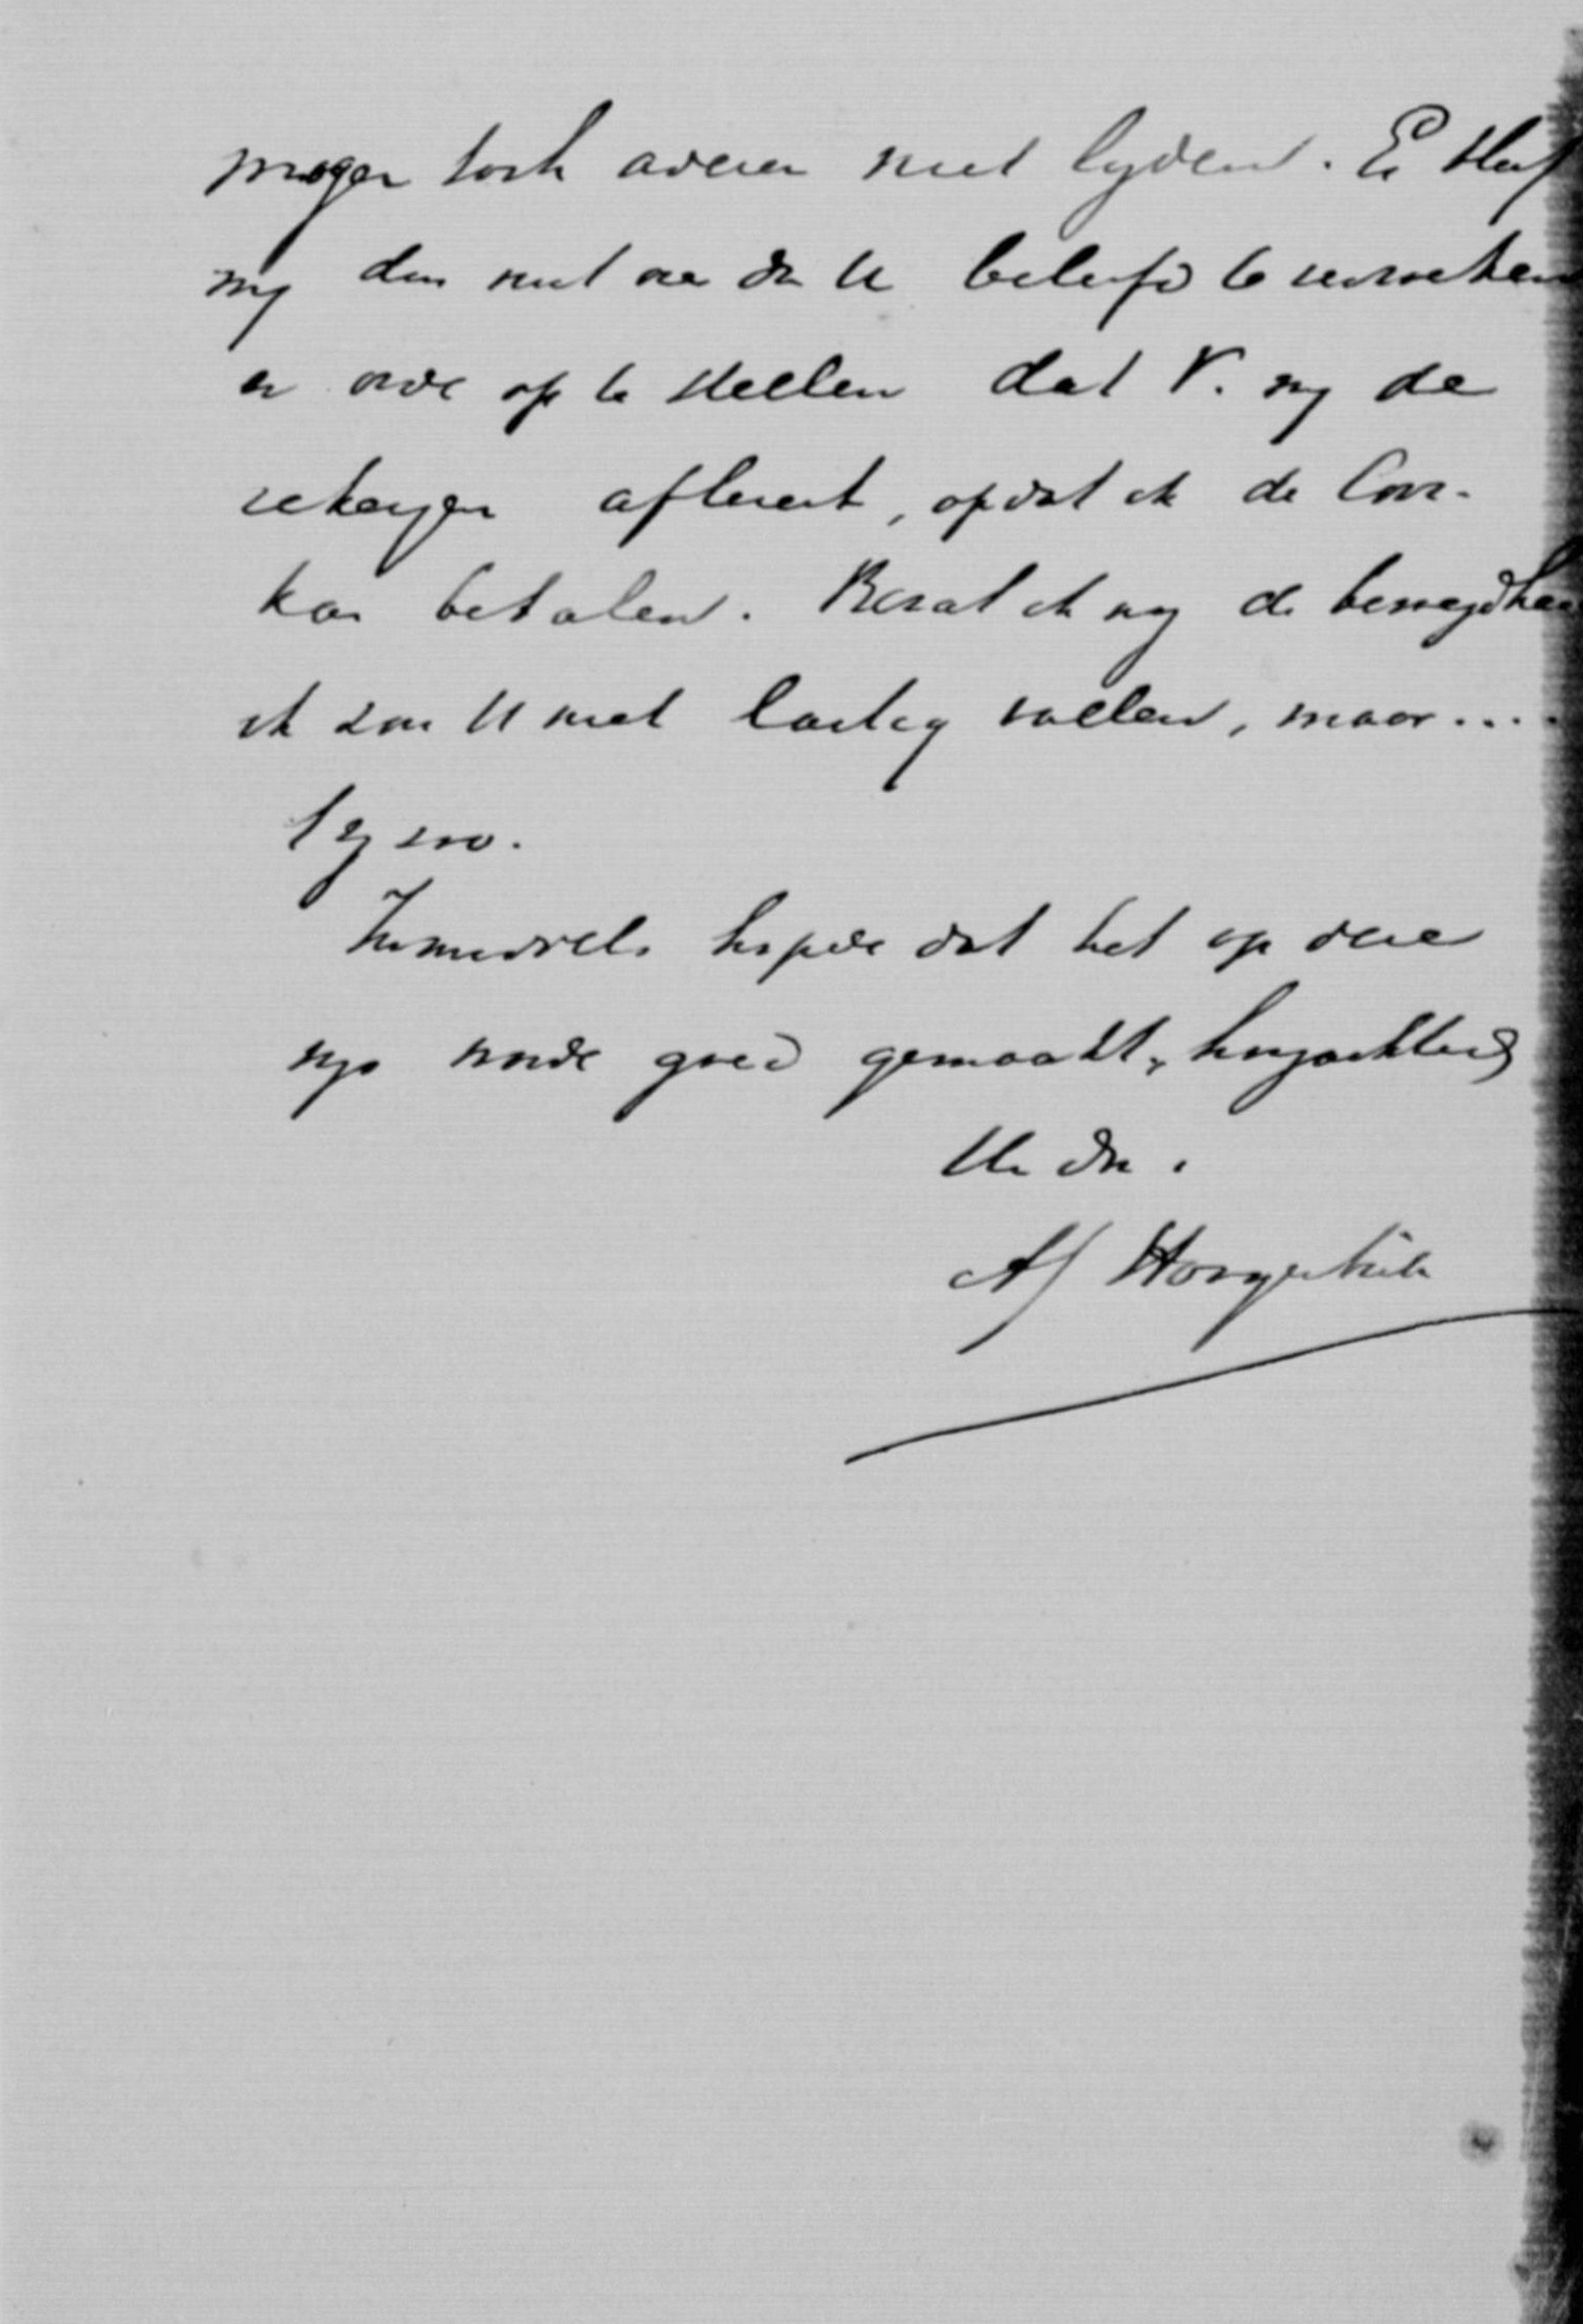 mogen toch anderen niet lijden. Er blijft
mij dus niet over dan U beleefd te verzoeken
er orde op te stellen dat V. mij de
rekeningen aflevert, opdat ik de Corr.
kan betalen. Bezat ik nog de
ik zou U niet lastig vallen, maar....
't zij zoo.
Inmiddels hopende dat het op deze
wijs worde goed gemaakt, hoogachtend
Uw dr.